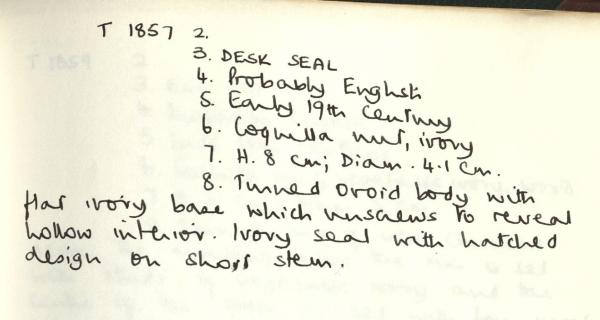 T 1857 2.
3. DESK SEAL
4. Probably English
5. Early 19th Century
6. Coquilla nut, ivory
7. H. 8 cm; Diam. 4.1 cm.
8. Turned ovoid body with
flat ivory base which unscrews to reveal
hollow interior. Ivory seal with hatched
design on short stem.